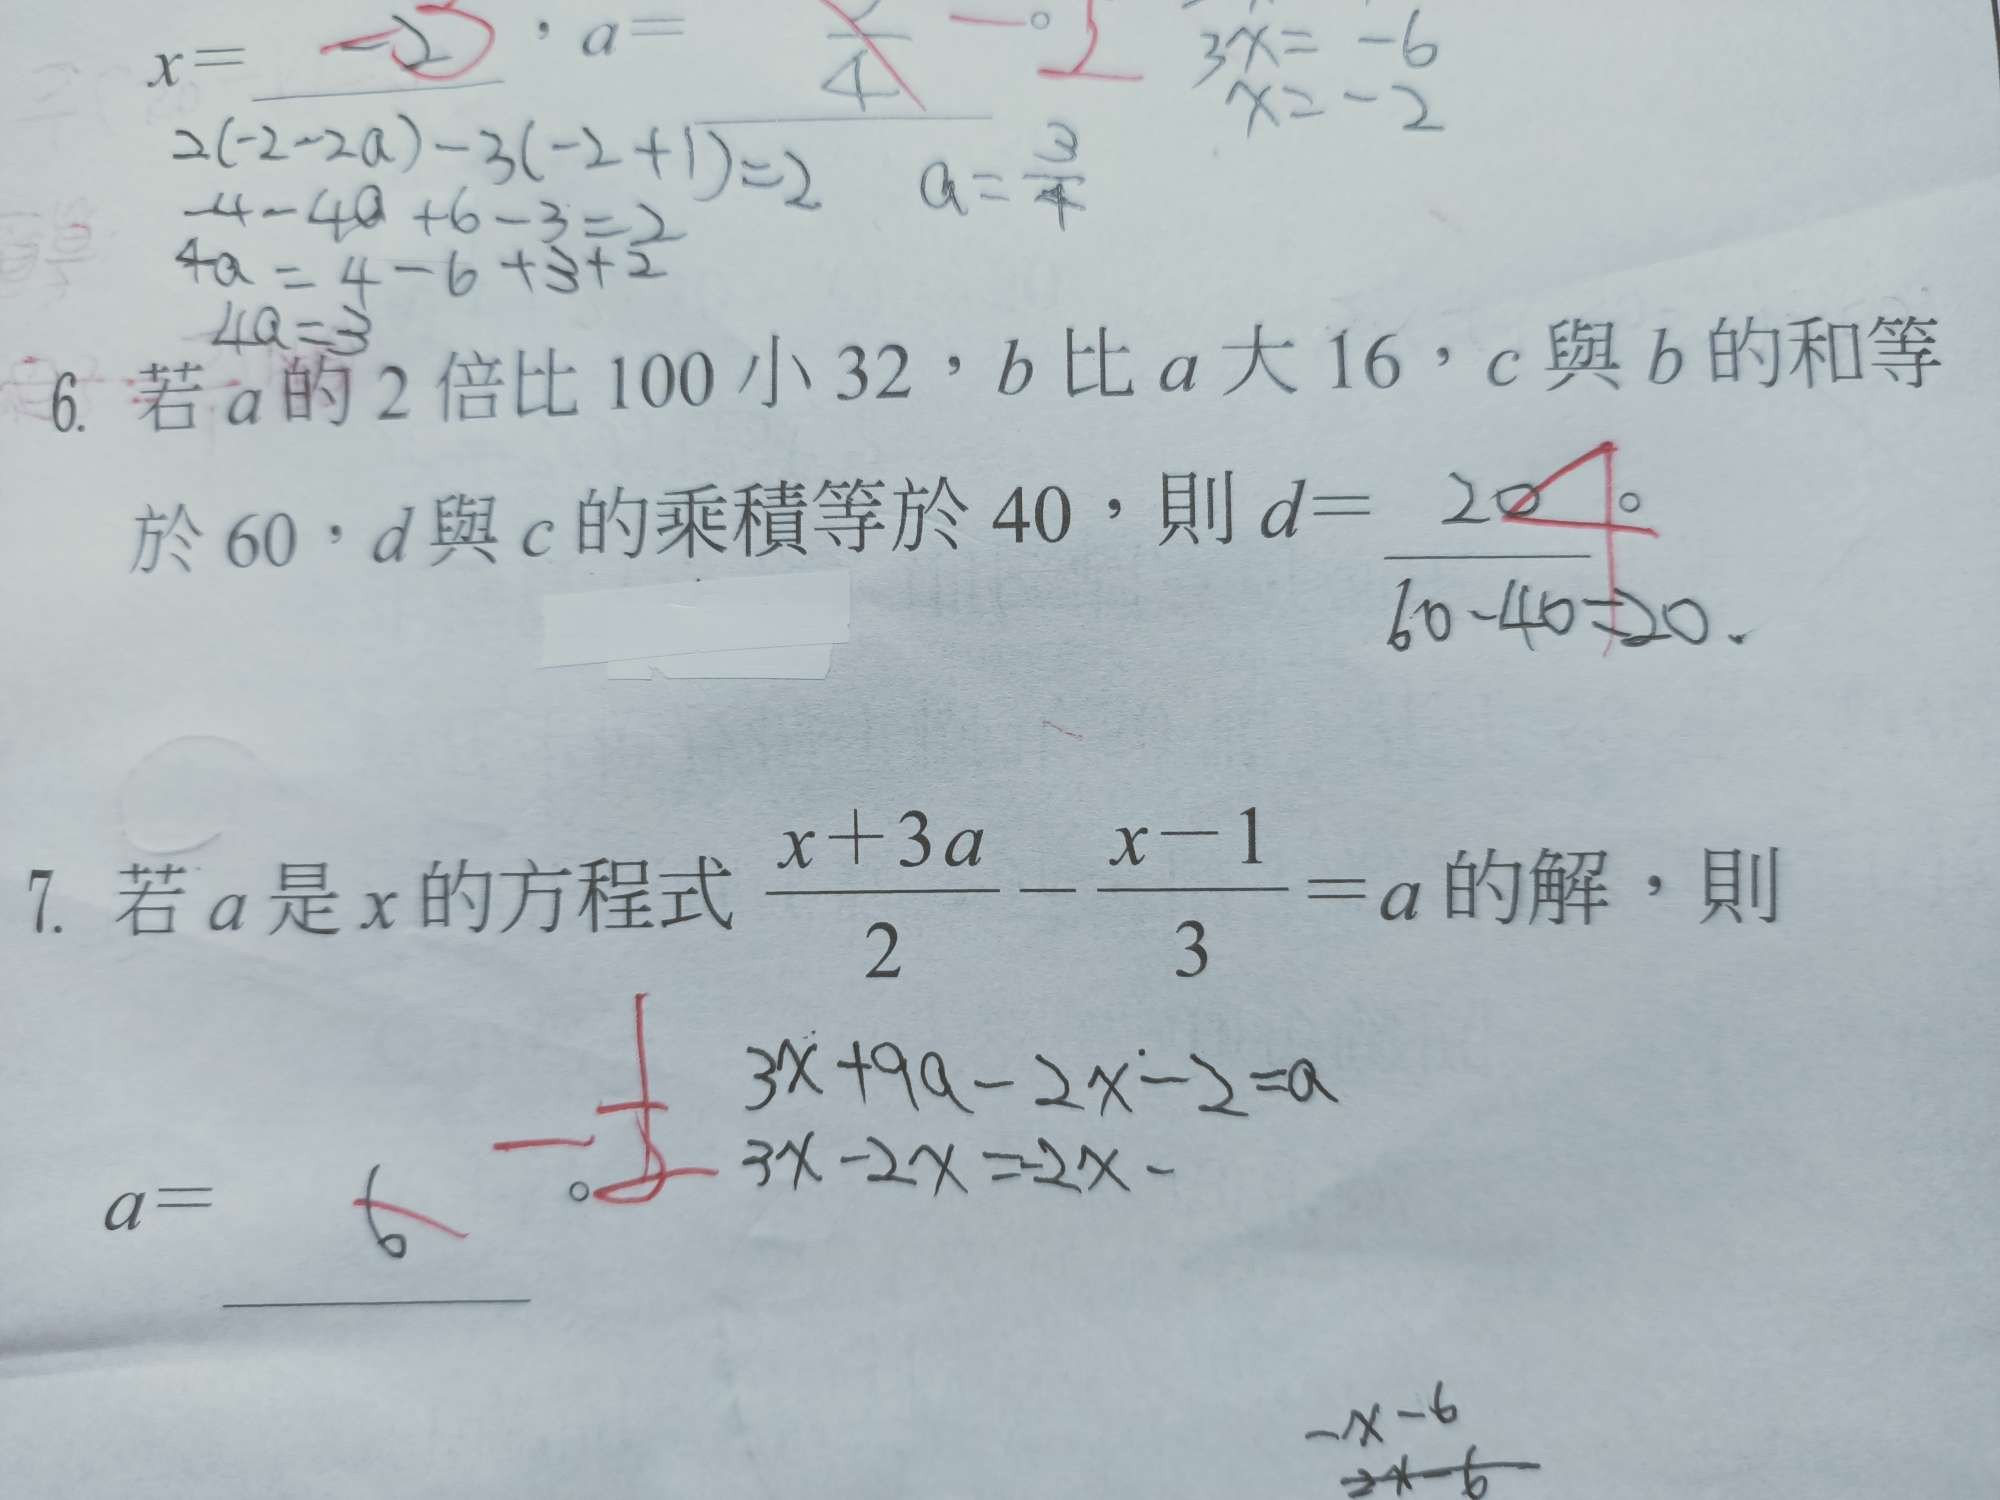 x= -2 , a= 4 -1
3x= -6
x= -2
2(-2-2a)-3(-2+1)=2 a=3/4
-4-4a+6-3=2
4a=4-6+3+2
4a=3
6. 若 a 的 2 倍比 100 小 32，b 比 a 大 16，c 與 b 的和等
於 60，d 與 c 的乘積等於 40，則 d= 20 4 。
60-40=20.
7. 若 a 是 x 的方程式 (x+3a)/2 - (x-1)/3 =a 的解，則
3x+9a-2x-2=a
3x-2x=-2x-
a= 6 。
-x-6
2x-6